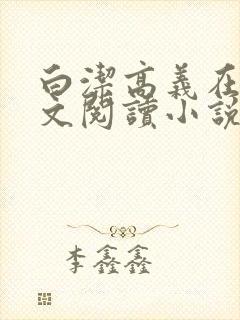 白潔高義在
文閱讀小說
李鑫鑫